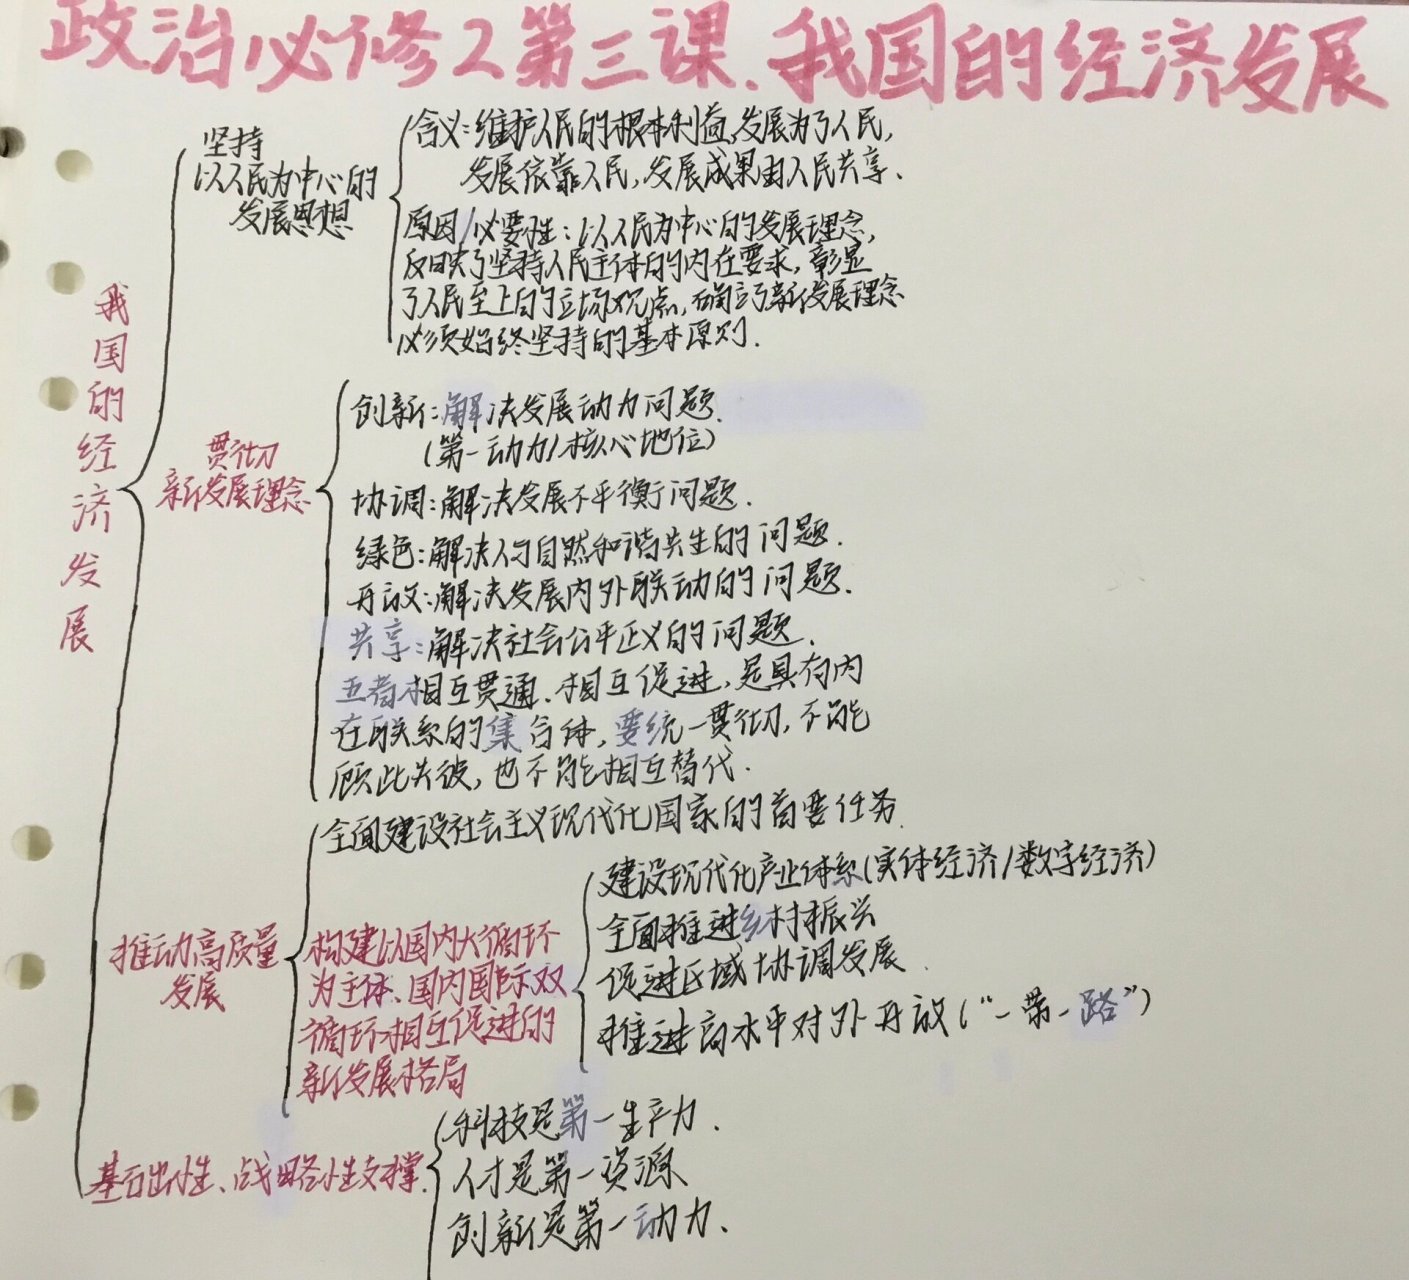 政治必修2第三课、我国的经济发展
我国的经济发展
坚持
以人民为中心的
发展思想
含义:维护人民的根本利益,发展为了人民,
发展依靠人民,发展成果由人民共享、
原因/必要性:以人民为中心的发展理念,
反映了坚持人民主体的内在要求,彰显
了人民至上的立场观点,确立了新发展理念
必须始终坚持的基本原则.
贯彻
新发展理念
创新:解决发展动力问题.
(第一动力/核心地位)
协调:解决发展不平衡问题.
绿色:解决人与自然和谐共生的问题.
开放:解决发展内外联动的问题.
共享:解决社会公平正义的问题.
五者相互贯通、相互促进,是具有内
在联系的集合体,要统一贯彻,不能
顾此失彼,也不能相互替代.
推动高质量
发展
全面建设社会主义现代化国家的首要任务.
构建以国内大循环
为主体、国内国际双
循环相互促进的
新发展格局
建设现代化产业体系(实体经济/数字经济)
全面推进乡村振兴
促进区域协调发展.
推进高水平对外开放(“一带一路”)
基石出性、战略性支撑.
科技是第一生产力.
人才是第一资源
创新是第一动力、